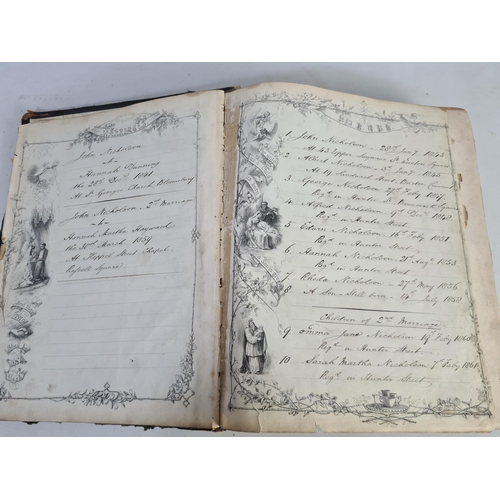 MARRIAGES
John Nicholson
to
Hannah
the 28th Octr 1841
At St Georges Church Bloomsbury
John Nicholson 2nd Marriage
to
Hannah Martha Hayward
the March 1859
At Keppel Street Chapel
Russell Square
BIRTHS
1. John Nicholson 29th Jany 1843
At 43 Upper Seymour St Euston Square
2. Albert Nicholson 5th Jany 1845
At 14
3. George Nicholson 27th Feby 1847
Regd in Hunter St Brunswick Square
4. Alfred Nicholson 9th 1848
Regd in Hunter Street
5. Edwin Nicholson 16th Feby 1851
Regd in Hunter Street
6. Hannah Nicholson 21st Augt 1853
Regd in Hunter Street
7 Rhoda Nicholson 27th May 1856
8 A Son Still born 14th July 1858
Children of 2nd Marriage
9 Emma Jane Nicholson 19 Feby 1860
Regd in Hunter Street
10 Sarah Martha Nicholson 7th Feby 1861
Regd in Hunter Street